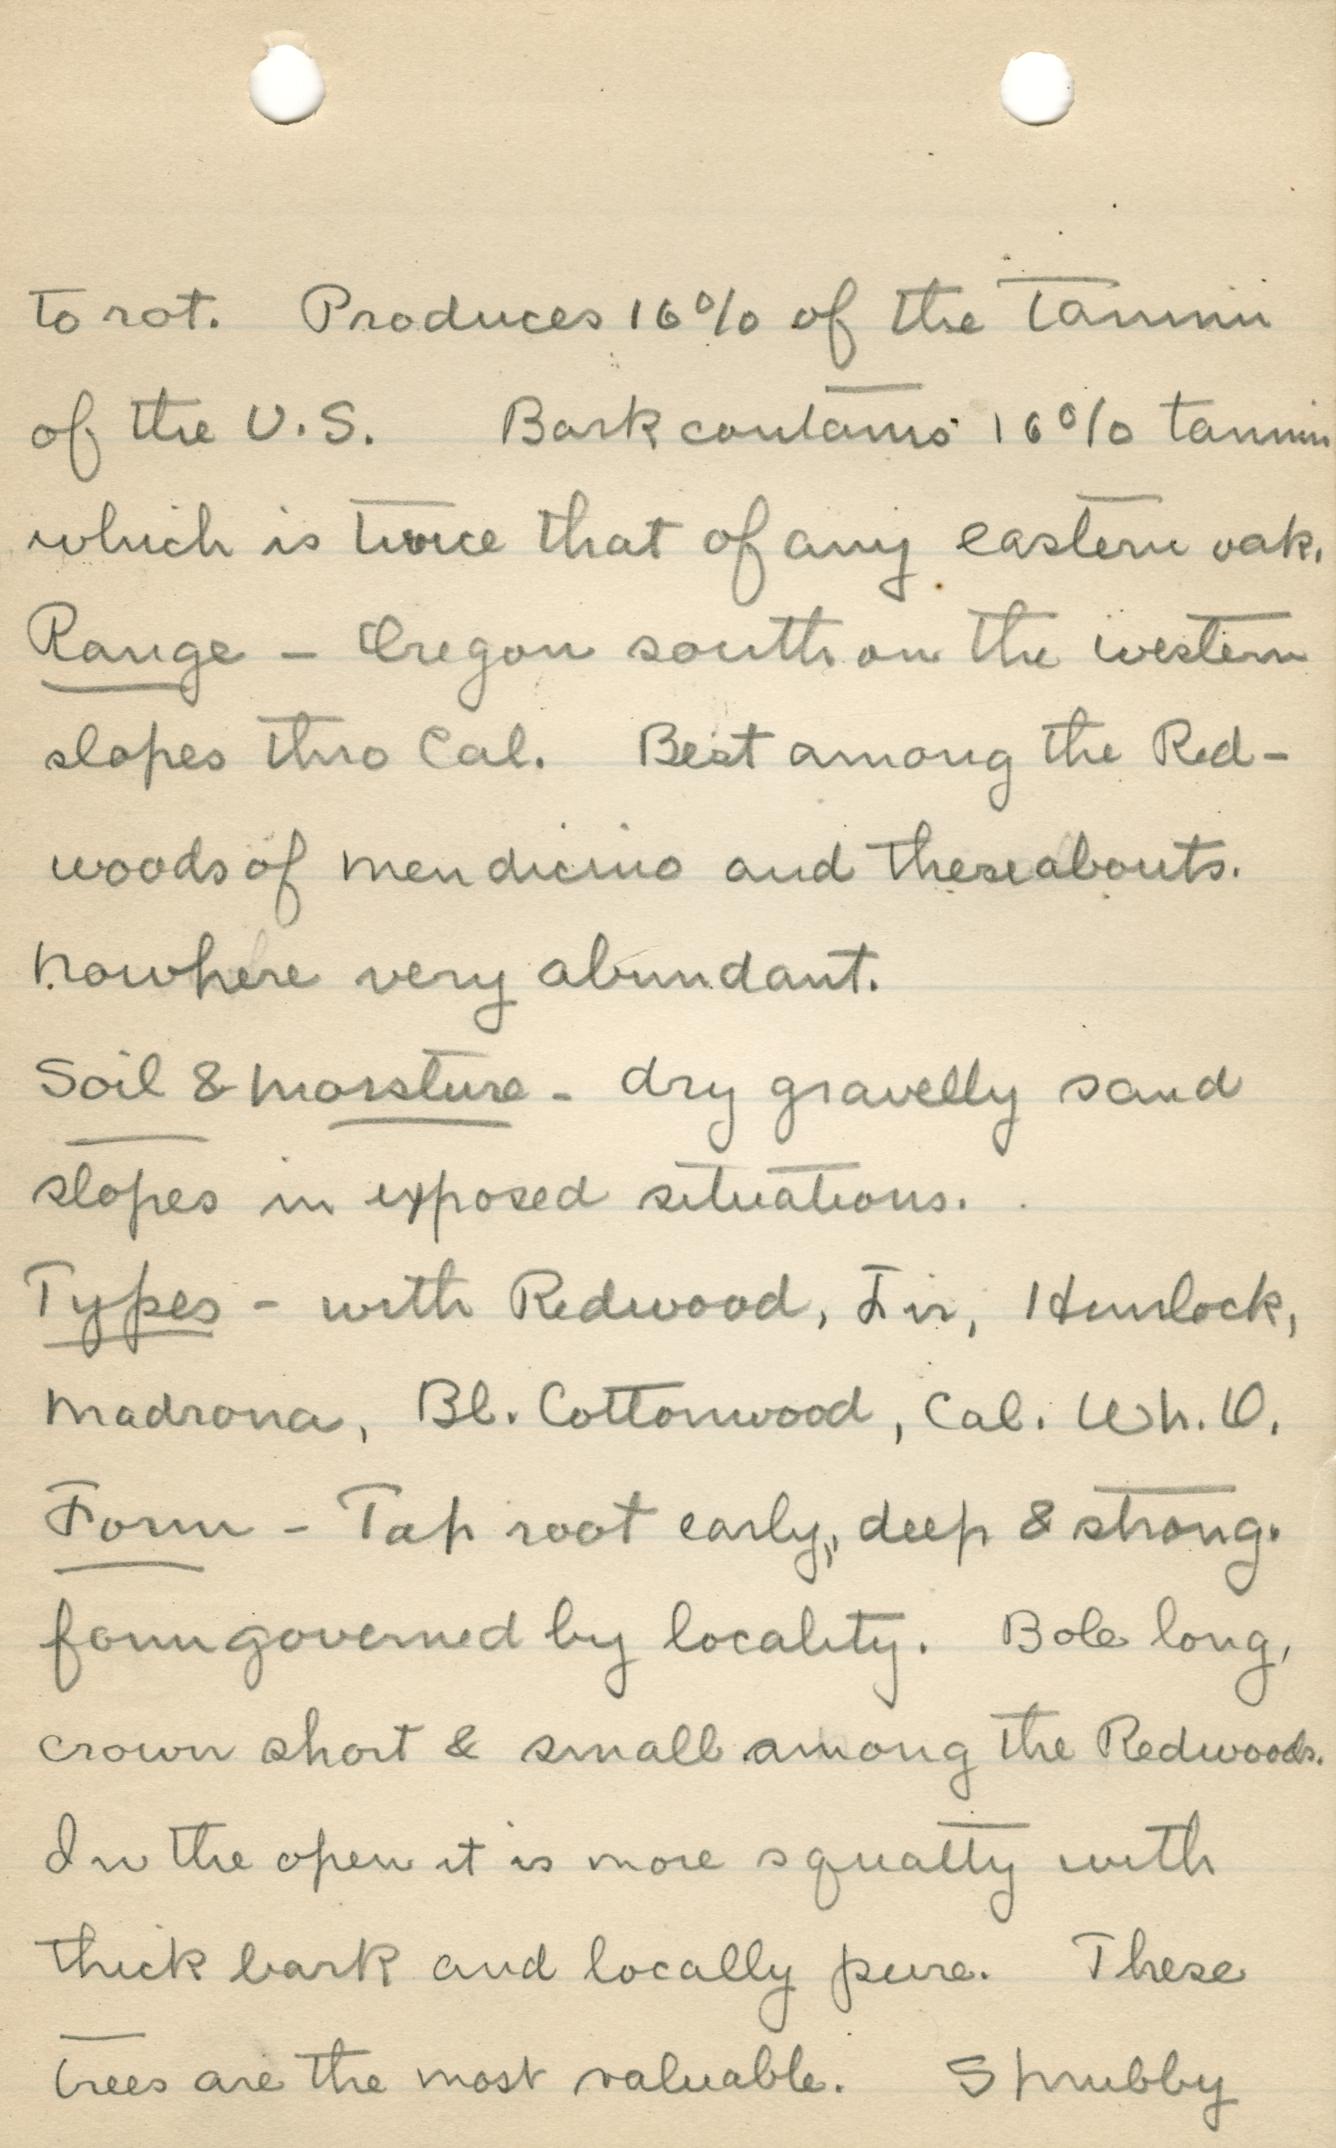 to rot. Produces 16% of the tannin
of the U.S. Bark contains 16% tannin
which is twice that of any eastern oak.
Range - Oregon south on the western
slopes thro Cal. Best among the Red-
woods of Mendicino and thereabouts.
Nowhere very abundant.
Soil & Moisture - dry gravelly sand
slopes in exposed situations.
Types - with Redwood, Fir, Hemlock,
Madrona, Bl. Cottonwood, Cal. Wh. O.
Form - Tap root early, deep & strong.
form governed by locality. Bole long,
crown short & small among the Redwoods.
In the open it is more squatty with
thick bark and locally pure. These
trees are the most valuable. Shrubby